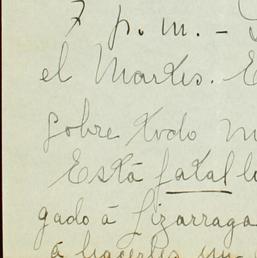 7 p. m. -
el Martes. E
sobre todo m
Está fatal l
gado á Lizarraga
á hacerlos un-